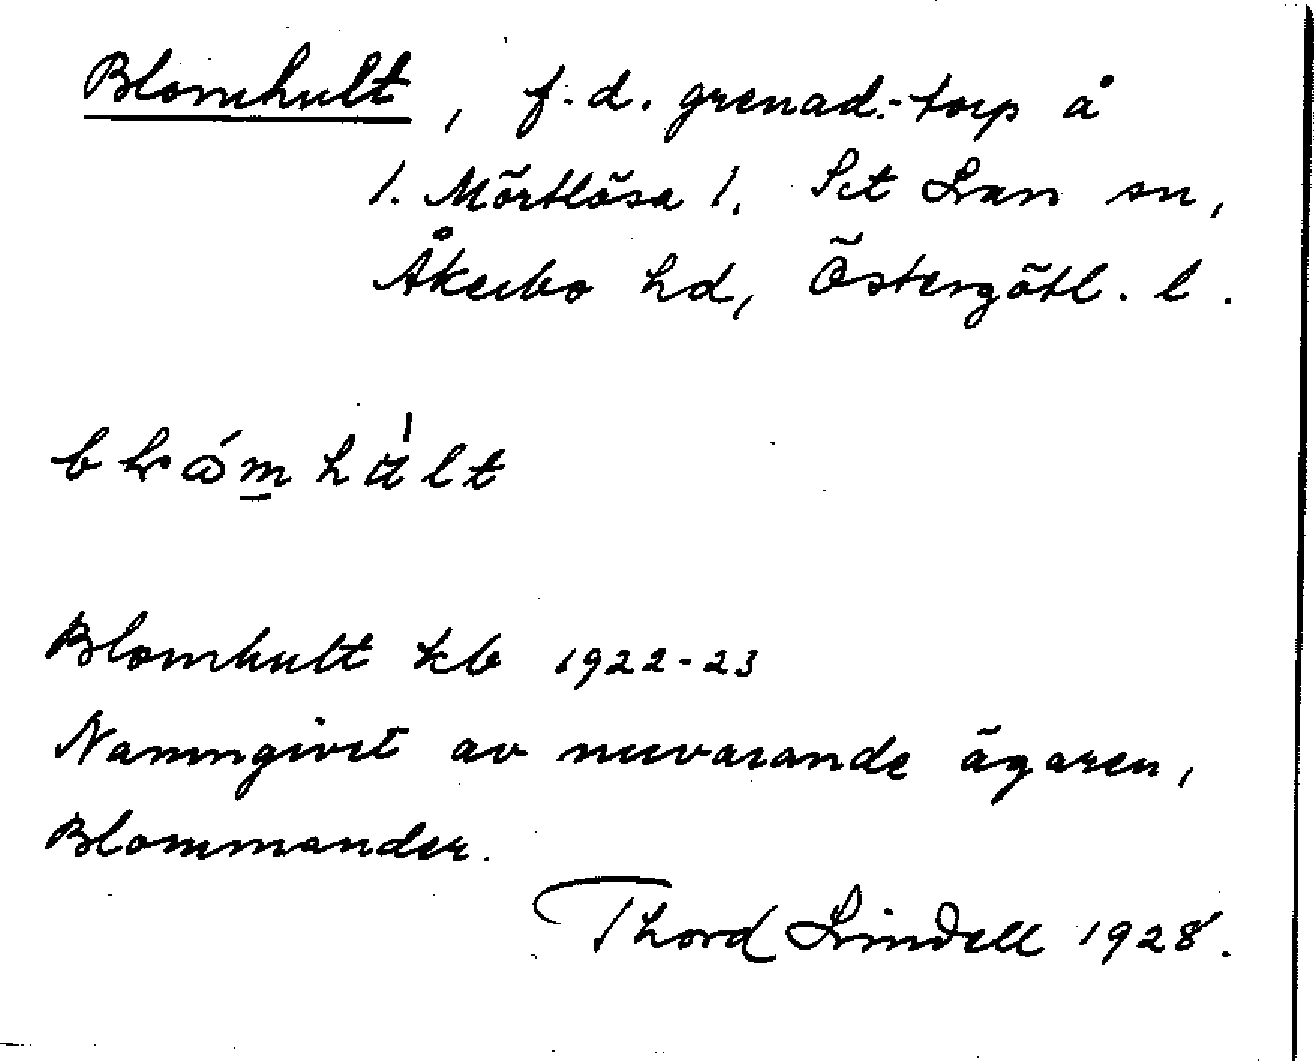 Blomhult, f.d. grenad.-torp å
1. Mörtlösa 1. S:t Lars sn,
Åkerbo hd, Östergötl. l.
Blomhult kb 1922-23
Namngivet av nuvarande ägaren,
Blommander.
Thord Lindell 1928.